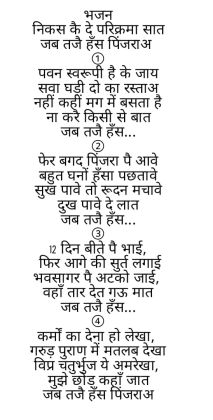 भजन
निकस कै दे परिक्रमा सात
जब तजै हँस पिंजराअ
①
पवन स्वरूपी है के जाय
सवा घड़ी दो का रस्ताअ
नहीं कहीं मग में बसता है
ना करे किसी से बात
जब तजै हँस...
②
फेर बगद पिंजरा पै आवे
बहुत घनों हँसा पछतावे
सुख पावे तो रूदन मचावे
दुख पावे दे लात
जब तजै हँस...
③
12 दिन बीते पै भाई,
फिर आगे की सुर्त लगाई
भवसागर पै अटको जाई,
वहाँ तार देत गऊ मात
जब तजै हँस...
④
कर्मों का देना हो लेखा,
गरुड़ पुराण में मतलब देखा
विप्र चतुर्भुज ये अमरेखा,
मुझे छोड़ कहाँ जात
जब तजै हँस पिंजराअ